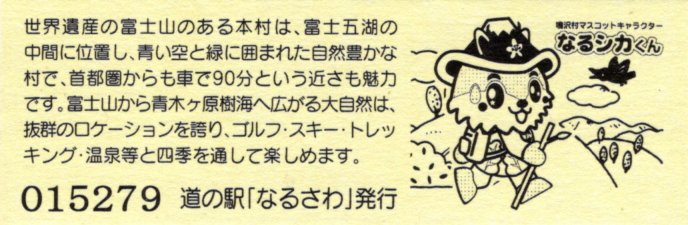 世界遺産の富士山のある本村は、富士五湖の
中間に位置し、青い空と緑に囲まれた自然豊かな
村で、首都圏からも車で90分という近さも魅力
です。富士山から青木ヶ原樹海へ広がる大自然は、
抜群のロケーションを誇り、ゴルフ・スキー・トレッ
キング・温泉等と四季を通して楽しめます。
015279 道の駅「なるさわ」発行
鳴沢村マスコットキャラクター
なるシカくん